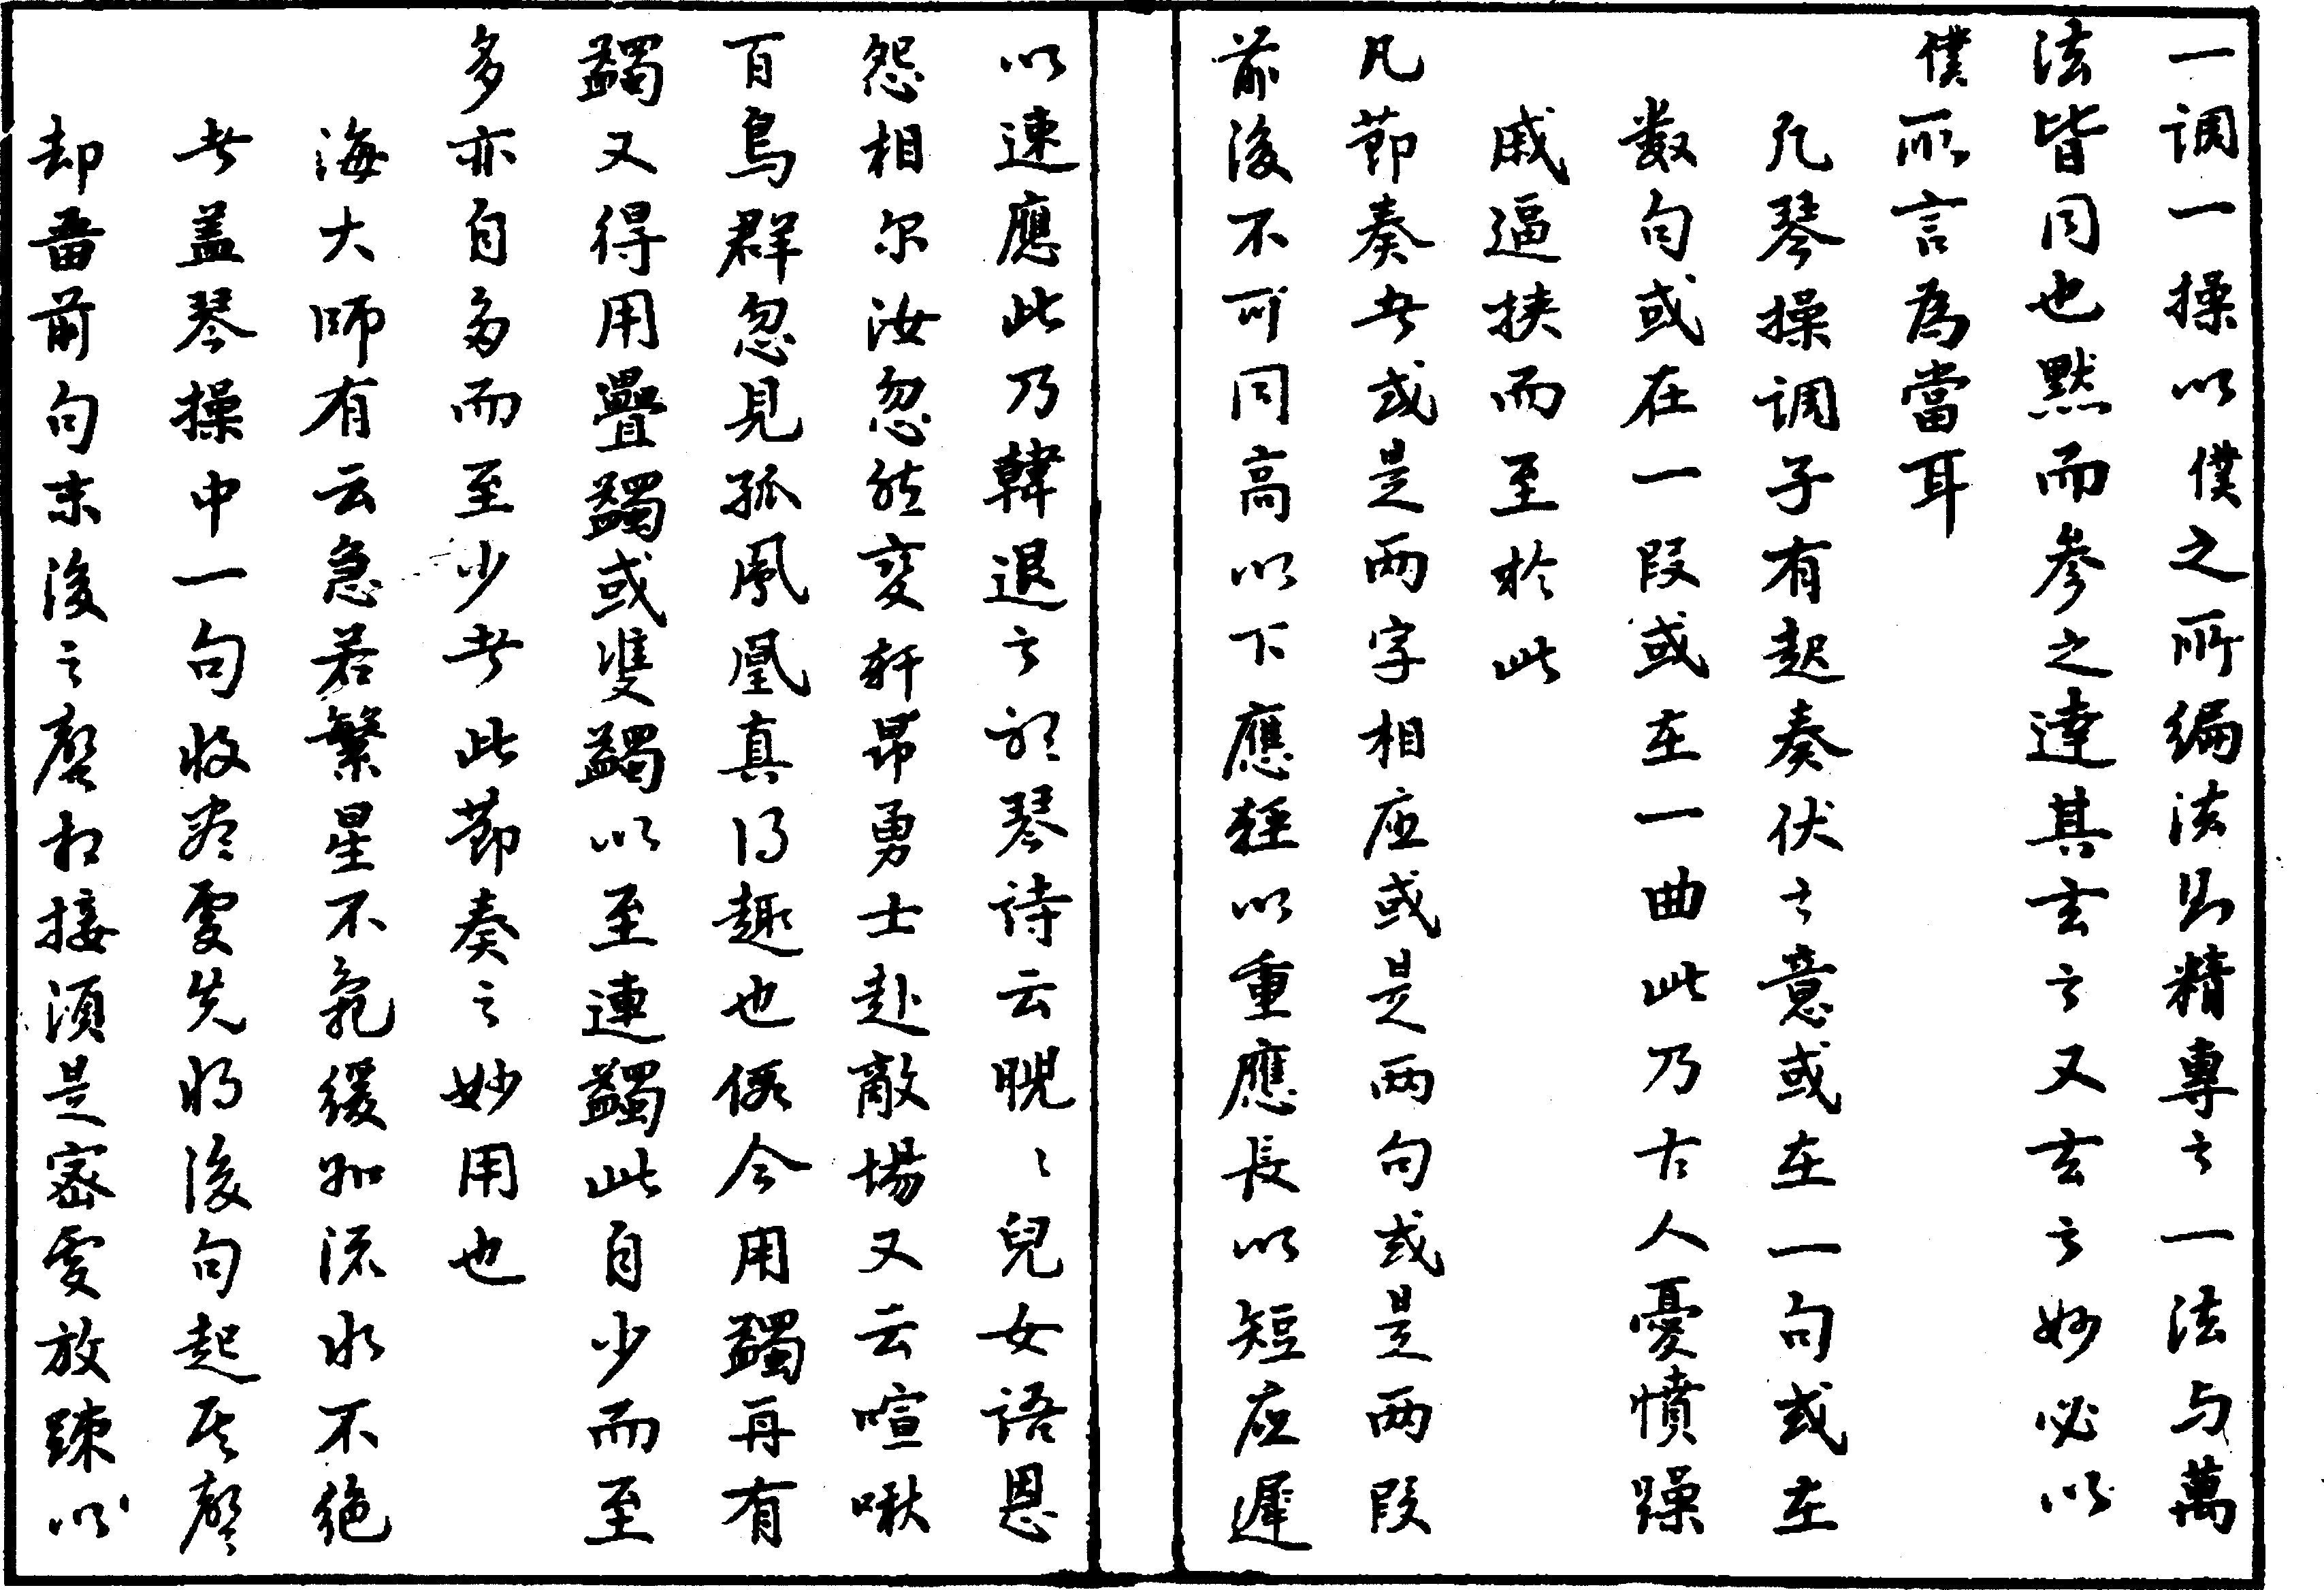 一調一操以僕之所編法則精專之一法与萬
法皆同也默而參之達其玄之又玄之妙必以
僕所言為當耳
凡琴操调子有起奏伏之意或在一句或在
数句或在一段或在一曲此乃古人憂憤躁
戚逼挾而至於此
凡節奏者或是兩字相应或是两句或是两段
前後不可同高以下應輕以重應長以短应遲
以速應此乃韓退之聽琴詩云睨〻兒女語恩
怨相尔汝忽然变軒昂勇士赴敵場又云喧啾
百鳥群忽見孤鳳凰真得趣也假令用蠲再有
蠲又得用疊蠲或雙蠲以至連蠲此自少而至
多亦自多而至少者此節奏之妙用也
海大師有云急若繁星不乱緩如流水不绝
者盖琴操中一句收殺處先將後句起其聲
却留前句末後之聲相接須是密處放踈以